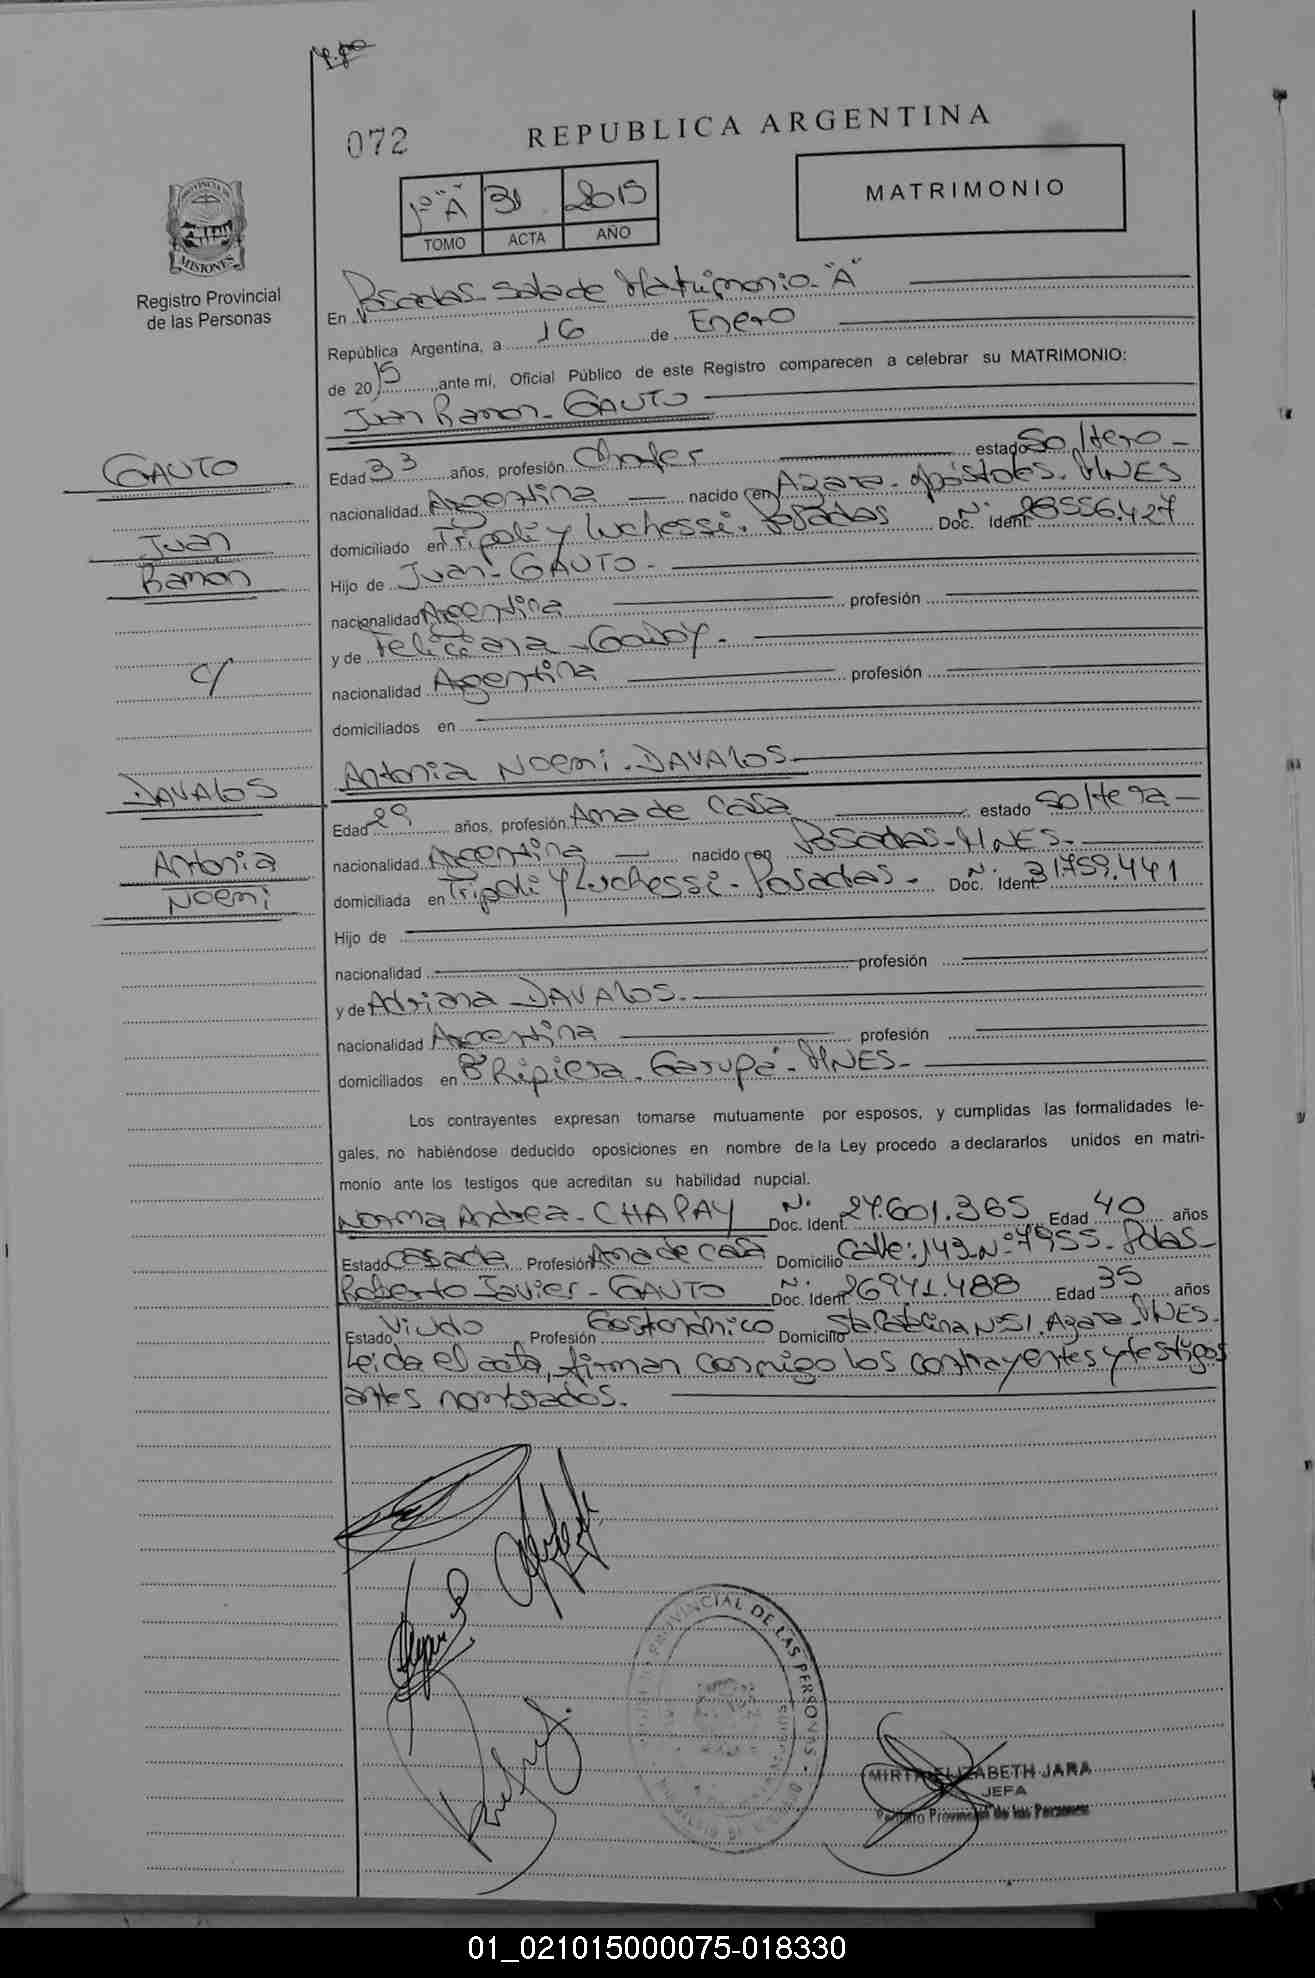 072
REPUBLICA ARGENTINA
1º "A" 31 2015
TOMO ACTA AÑO
MATRIMONIO
MISIONES
Registro Provincial
de las Personas
En Posadas - Sala de Matrimonio - "A"
República Argentina, a 16 de Enero
de 2015 ante mi, Oficial Público de este Registro comparecen a celebrar su MATRIMONIO:
Juan Ramon - GAUTO
GAUTO
Juan
Ramon
c/
DAVALOS
Antonia
Noemi
Edad 33 años, profesión Chofer estado Soltero -
nacionalidad Argentina nacido en Azara - Apóstoles - MNES
domiciliado en Tripoli y Luchessi - Posadas Doc. Ident. Nº 28556.427
Hijo de Juan - GAUTO -
nacionalidad Argentina profesión
y de Feliciana - Godoy -
nacionalidad Argentina profesión
domiciliados en
Antonia Noemi - DAVALOS
Edad 29 años, profesión Ama de Casa estado Soltera -
nacionalidad Argentina nacido en Posadas - MNES -
domiciliada en Tripoli y Luchessi - Posadas - Doc. Ident. Nº 31759.441
Hijo de
nacionalidad profesión
y de Adriana - DAVALOS -
nacionalidad Argentina profesión
domiciliados en Bº Ripiera - Garupá - MNES -
Los contrayentes expresan tomarse mutuamente por esposos, y cumplidas las formalidades le-
gales, no habiéndose deducido oposiciones en nombre de la Ley procedo a declararlos unidos en matri-
monio ante los testigos que acreditan su habilidad nupcial.
Norma Andrea - CHAPAY Doc. Ident. Nº 24.601.365 Edad 40 años
Estado Casada Profesión Ama de Casa Domicilio Calle: 143 Nº 7955 - Pdas -
Roberto Javier - GAUTO Doc. Ident. Nº 26941.488 Edad 35 años
Estado Viudo Profesión Gastronómico Domicilio Sta. Catalina Nº 51. Azara - MNES -
Leida el acta, firman conmigo los contrayentes y testigos
antes nombrados.
PROVINCIAL DE LAS PERSONAS
MIRTA ELIZABETH JARA
JEFA
Registro Provincial de las Personas
01_021015000075-018330